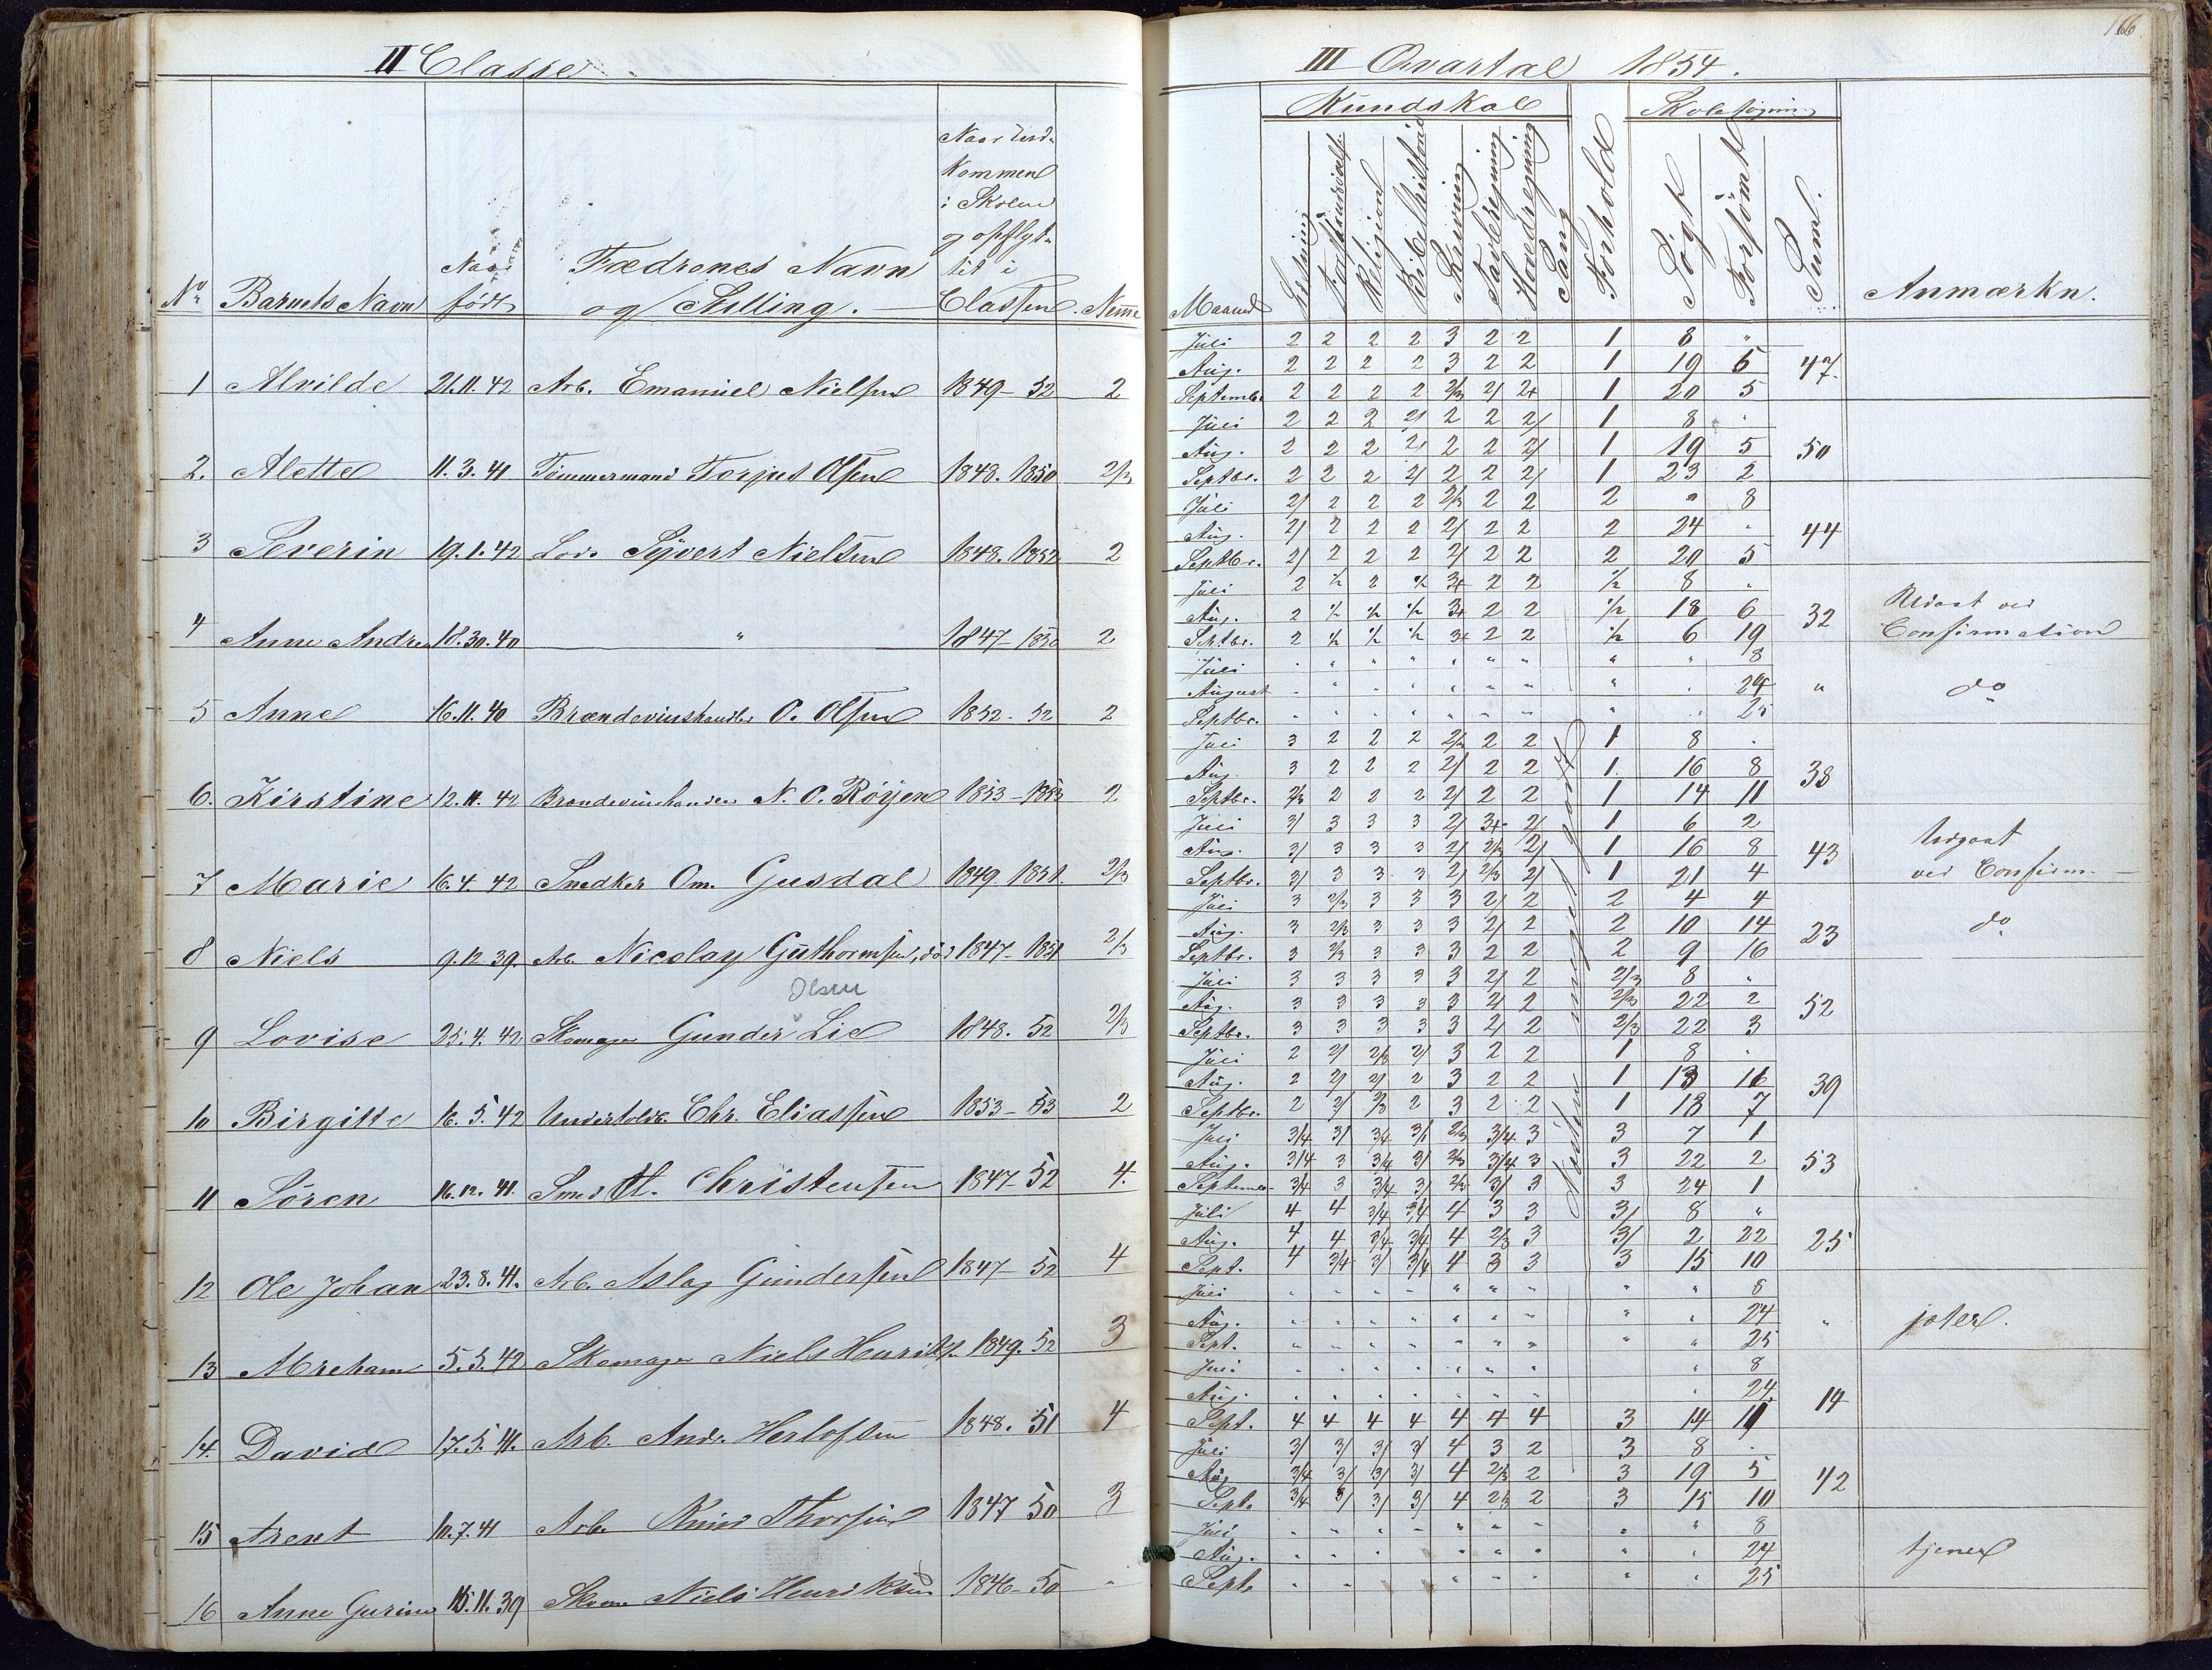 166
II Classe
III Qvartal 1854.
Kundskab
Skolesøgning
No
Barnets Navn
Naar født
Fædrenes Navn og Stilling.
Naar ind-
kommen
i Skolen
og opflyt-
tet i
Classen.
Maaned
Religion
Bibelhistorie
Skrivning
Tavleregning
Hovedregning
Sang
Forhold
Søgt
Forsømt
Suml.
Anmærkn.
1 Alvilde 21.11.42 Arb. Emanuel Nielsen 1849-52 2
Juli 2 2 2 2 3 2 2 1 8 "
Aug. 2 2 2 2 3 2 2 1 19 5 47
Septembr 2 2 2 2 2/3 2/ 2+ 1 20 5
2. Alette 11.3.41 Tømmermand Torjus Olsen 1848. 1850 2/3
Juli 2 2 2 2/ 2 2 2/ 1 8 "
Aug. 2 2 2 2/ 2 2 2/ 1 19 5 50
Septbr. 2 2 2 2/ 2 2 2/ 1 23 2
3 Severin 19.1.42 Lods Syvert Nielsen 1848. 1852 2
Juli 2/ 2 2 2 2/3 2 2 2 " 8
Aug. 2/ 2 2 2 2/ 2 2 2 24 " 44
Septbr. 2/ 2 2 2 2/ 2 2 2 20 5
4 Anne Andrea 18.30.40 " 1847-1850 2
Juli 2 1/2 2 1/2 3+ 2 2 1/2 8 "
Aug. 2 1/2 1/2 1/2 3+ 2 2 1/2 18 6 32 Udgaat ved
Septbr. 2 1/2 1/2 1/2 3+ 2 2 1/2 6 19 Confirmation
5 Anne 16.11.40 Brændevinshandler O. Olsen 1852-52 2
Juli " " " " " " " " " 8
August " " " " " " " " " 24 " do
Septbr. " " " " " " " " " 25
6. Kirstine 12.11.42 Brændevinshandler N. O. Røyen 1853-1853 2
Juli 3 2 2 2 2/3 2 2 1 8 "
Aug. 3 2 2 2 2/ 2 2 1 16 8 38
Septbr. 2/3 2 2 2 2/ 2 2 1 14 11
7 Marie 16.4.42 Snedker Om. Gusdal 1849. 1851. 2/3
Juli 3/ 3 3 3 2/ 3+ 2/ 1 6 2
Aug. 3/ 3 3 3 2/ 2/3 2/ 1 16 8 43 Udgaat
Septbr. 3/ 3 3 3 2/ 2/3 2/ 1 21 4 ved Confirm.
8 Niels 9.12.39. Arb. Nicolay Guthormsen, død 1847-1851 2/3
Juli 3 2/3 3 3 3 2/ 2 2 4 4
Aug. 3 2/3 3 3 3 2/ 2 2 10 14 23 do
Septbr. 3 2/3 3 3 3 2 2 2 9 16
Olsen
9 Lovise 25.4.42 Skomager Gunder Lie 1848. 52 2/3
Juli 3 3 3 3 3 2/ 2 2/3 8 "
Aug. 3 3 3 3 3 2/ 2 2/3 22 2 52
Septbr. 3 3 3 3 3 2/ 2 2/3 22 3
10 Birgitte 16.5.42 Undertoldb. Chr. Eliassen 1853-53 2
Juli 2 2/ 2/3 2/ 3 2 2 1 8 "
Aug. 2 2/ 2/ 2 3 2 2 1 13 11 39
Septbr. 2 2/ 2/3 2 3 2 2 1 18 7
11 Søren 16.12.41. Smed A. Christensen 1847-52 4.
Juli 3/4 3/ 3/4 3/ 2/3 3/4 3 3 7 1
Aug. 3/4 3 3/4 3/ 2/3 3/4 3 3 22 2 53
Septembr. 3/4 3 3/4 3/ 2/3 3/ 3 3 24 1
12 Ole Johan 23.8.41. Arb. Aslag Gundersen 1847-52 4
Juli 4 4 3/4 3/4 4 3 3 3/ 8 "
Aug. 4 4 3/4 3/4 4 2/3 3 3/ 2 22 25
Sept. 4 3/4 3/ 3/4 4 3 3 3 15 10
13 Abreham 5.5.42 Skomager Niels Henriks. 1849. 52 3
Juli " " " " " " " " " 8
Aug. " " " " " " " " " 24 "
Sept. " " " " " " " " " 25
14. David 17.5.41. Arb. Andr. Herlofsen 1848. 51 4
Juli " " " " " " " " 8
Aug. " " " " " " " " 24 14
Sept. 4 4 4 4 4 4 4 3 14 11
15 Arent 10.7.41 Arb. Knud Thorsen 1847 50 3
Juli 3/ 3/ 3/ 3/ 4 3 2 3 8 "
Aug 3/4 3/ 3/ 3/ 4 2/3 2 3 19 5 42
Sept. 3/4 3/ 3/ 3/ 4 2/3 2 3 15 10
16 Anne Gurine 15.11.39 Skom. Niels Henriksen 1846-50 "
Juli " " " " " " " " " 8
Aug. " " " " " " " " 24 tjener
Sept. " " " " " " " 25
Næsten meget godt